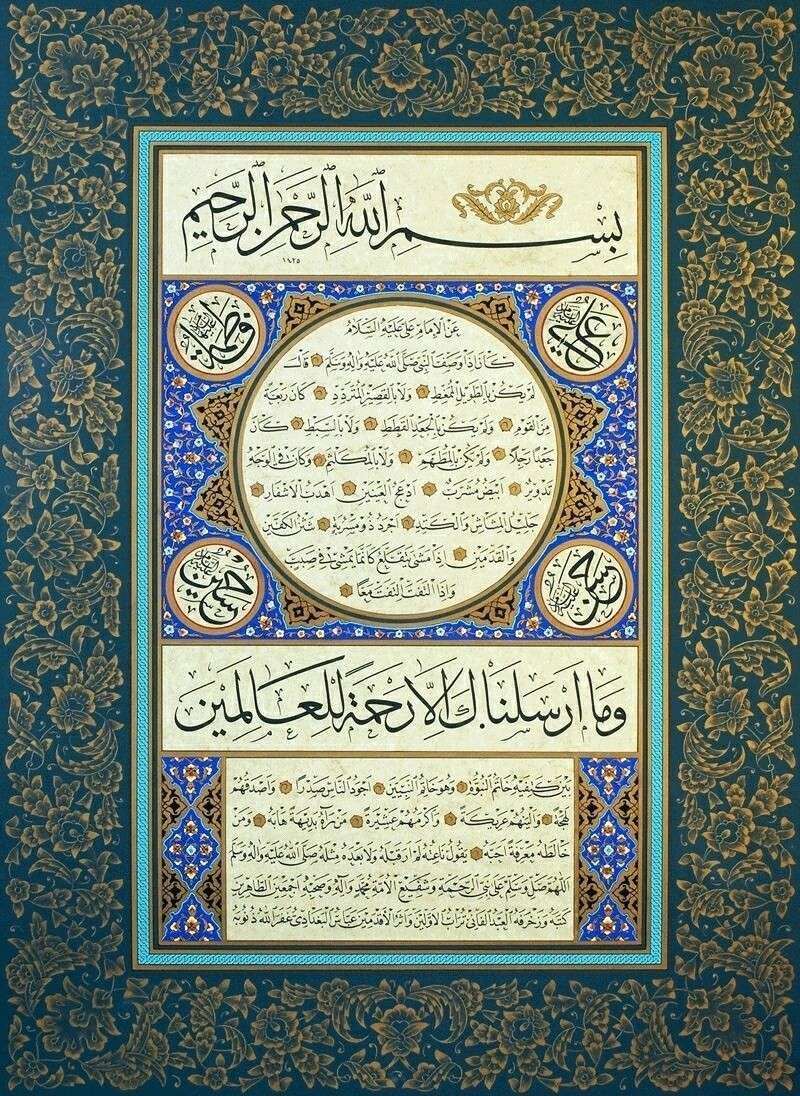 بِسْمِ اللّٰهِ الرَّحْمٰنِ الرَّحِيمِ
علي
فاطمة
عن الإمام علي عليه السلام
كان إذا وصف النبي صلى الله عليه وآله وسلم قال
لم يكن بالطويل الممغط ولا بالقصير المتردد كان ربعة
من القوم ولم يكن بالجعد القطط ولا بالسبط كان
جعدا رجلا ولم يكن بالمطهم ولا بالمكلثم وكان في الوجه
تدوير ابيض مشرب ادعج العينين اهدب الاشفار
جليل المشاش والكتد اجرد ذو مسربة شثن الكفين
والقدمين إذا مشى يتقلع كأنما يمشي في صبب
وإذا التفت التفت معا
حسن
حسين
وَمَا أَرْسَلْنَاكَ إِلَّا رَحْمَةً لِلْعَالَمِينَ
بين كتفيه خاتم النبوة وهو خاتم النبيين اجود الناس صدرا واصدقهم
لهجة والينهم عريكة واكرمهم عشيرة من رآه بديهة هابه ومن
خالطه معرفة احبه يقول ناعته لم ار قبله ولا بعده مثله صلى الله عليه وآله وسلم
اللهم صل وسلم على نبي الرحمة وشفيع الامة محمد وآله وصحبه اجمعين الطاهرين
كتبه وزخرفه العبد الفاني تراب الاولين واثر الاقدمين عباس البغدادي غفر الله ذنوبه